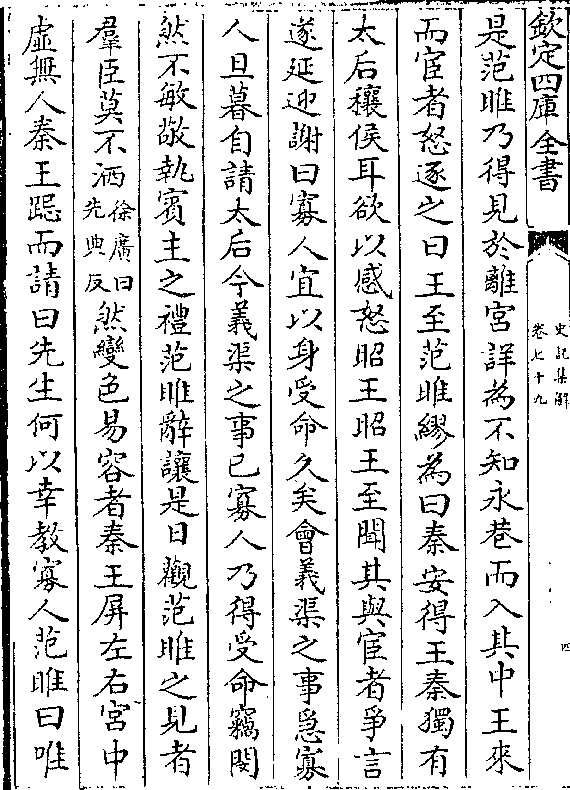 欽定四庫全書
史記集解
卷七十九
四
是范雎乃得見於離宮詳為不知永巷而入其中王來
而宦者怒逐之曰王至范雎繆為曰秦安得王秦獨有
太后穰侯耳欲以感怒昭王昭王至聞其與宦者爭言
遂延迎謝曰寡人宜以身受命久矣會義渠之事急寡
人旦暮自請太后今義渠之事已寡人乃得受命竊閔
然不敏敬執賓主之禮范雎辭讓是日觀范雎之見者
羣臣莫不洒徐廣曰先典反然變色易容者秦王屏左右宮中
虛無人秦王跽而請曰先生何以幸教寡人范雎曰唯